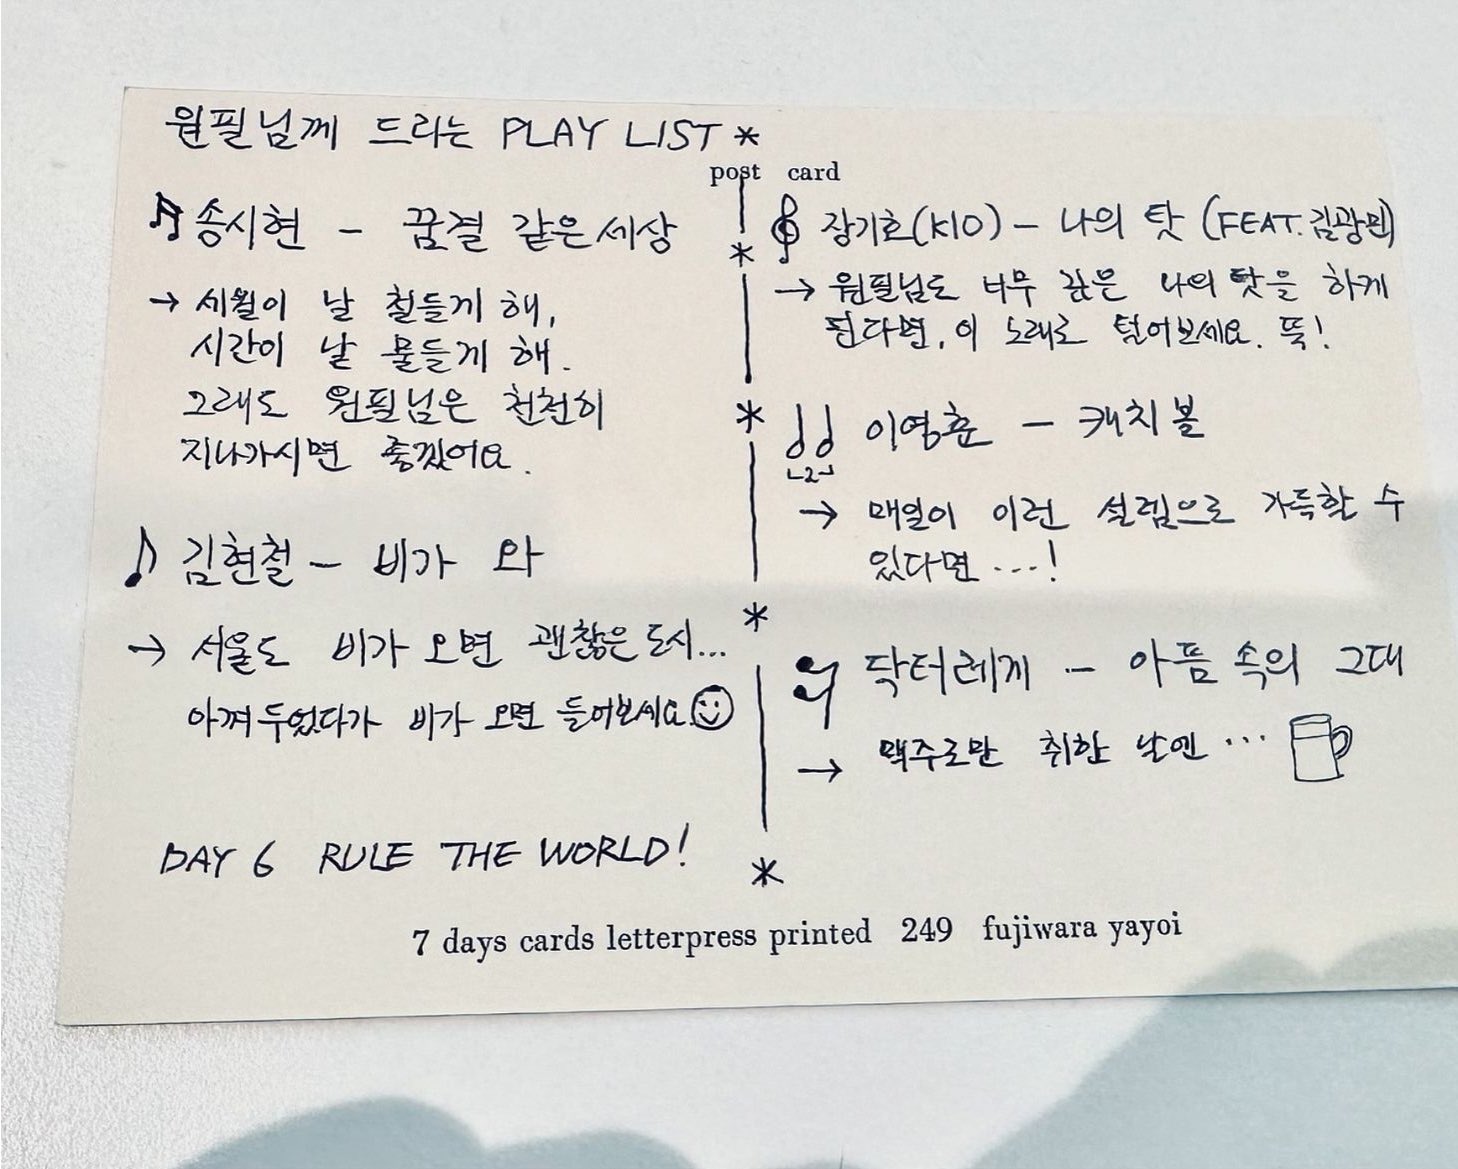 원필님께 드리는 PLAY LIST *
post card
송시현 - 꿈결 같은 세상
→ 세월이 날 철들게 해,
시간이 날 물들게 해.
그래도 원필님은 천천히
지나가시면 좋겠어요.
김현철 - 비가 와
→ 서울도 비가 오면 괜찮은 도시...
아껴두었다가 비가 오면 들어보세요
DAY 6 RULE THE WORLD!
장기호(KIO) - 나의 탓 (FEAT. 김광민)
→ 원필님도 너무 깊은 나의 탓을 하게
된다면, 이 노래로 털어보세요. 뚝!
이영훈 - 캐치볼
2
→ 매일이 이런 설렘으로 가득할 수
있다면 ...!
닥터레게 - 아픔 속의 그대
→ 맥주로만 취한 날엔 ...
7 days cards letterpress printed 249 fujiwara yayoi